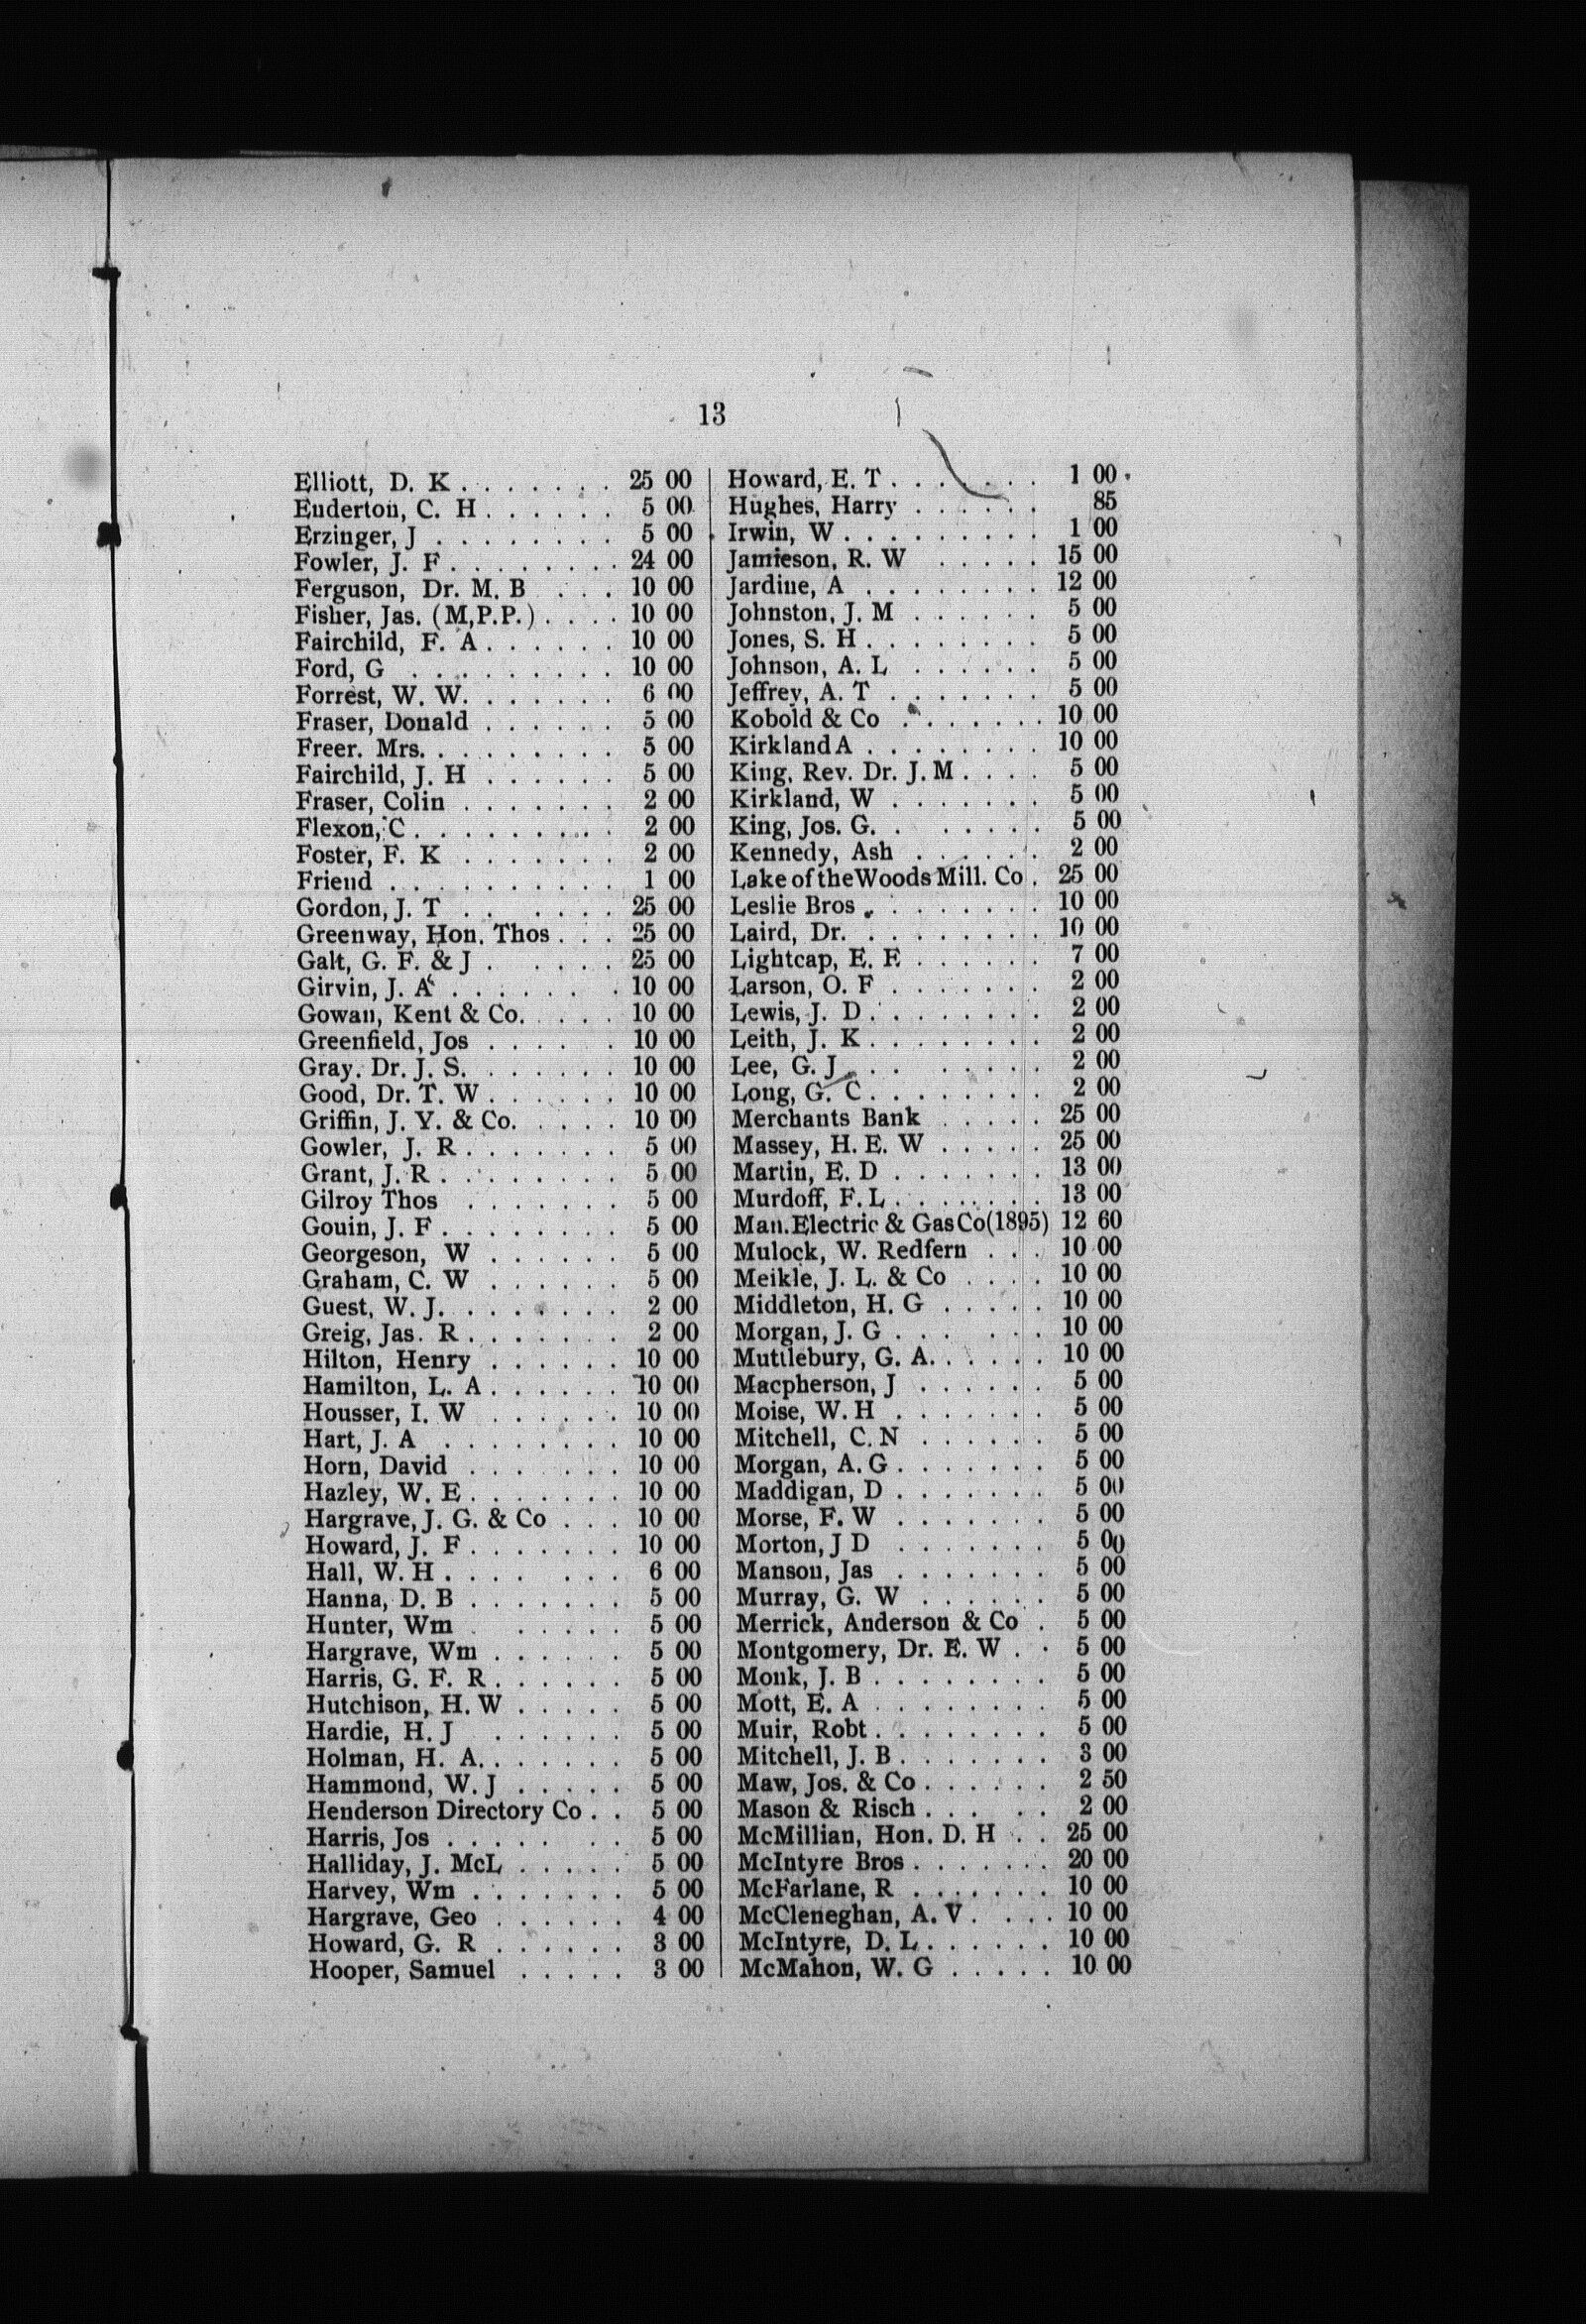 13
Elliott, D. K . . . . . . . 25 00
Enderton, C. H . . . . . . 5 00
Erzinger, J . . . . . . . . 5 00
Fowler, J. F . . . . . . . . 24 00
Ferguson, Dr. M. B . . . 10 00
Fisher, Jas. (M,P.P.) . . . . 10 00
Fairchild, F. A . . . . . . 10 00
Ford, G . . . . . . . . . 10 00
Forrest, W. W. . . . . . . 6 00
Fraser, Donald . . . . . . 5 00
Freer. Mrs. . . . . . . . . 5 00
Fairchild, J. H . . . . . . 5 00
Fraser, Colin . . . . . . . 2 00
Flexon, C . . . . . . . . . 2 00
Foster, F. K . . . . . . . 2 00
Friend . . . . . . . . . . 1 00
Gordon, J. T . . . . . . 25 00
Greenway, Hon. Thos . . . 25 00
Galt, G. F. & J . . . . . 25 00
Girvin, J. A . . . . . . . 10 00
Gowan, Kent & Co. . . . . 10 00
Greenfield, Jos . . . . . . 10 00
Gray. Dr. J. S. . . . . . . 10 00
Good, Dr. T. W . . . . . . 10 00
Griffin, J. Y. & Co. . . . . 10 00
Gowler, J. R . . . . . . . 5 00
Grant, J. R . . . . . . . . 5 00
Gilroy Thos . . . . . . . 5 00
Gouin, J. F . . . . . . . . 5 00
Georgeson, W . . . . . . 5 00
Graham, C. W . . . . . . 5 00
Guest, W. J. . . . . . . . 2 00
Greig, Jas. R . . . . . . . 2 00
Hilton, Henry . . . . . . 10 00
Hamilton, L. A . . . . . . 10 00
Housser, I. W . . . . . . 10 00
Hart, J. A . . . . . . . . 10 00
Horn, David . . . . . . 10 00
Hazley, W. E . . . . . . . 10 00
Hargrave, J. G. & Co . . . 10 00
Howard, J. F . . . . . . . 10 00
Hall, W. H . . . . . . . 6 00
Hanna, D. B . . . . . . . 5 00
Hunter, Wm . . . . . . 5 00
Hargrave, Wm . . . . . . 5 00
Harris, G. F. R . . . . . . 5 00
Hutchison, H. W . . . . . 5 00
Hardie, H. J . . . . . . 5 00
Holman, H. A. . . . . . . 5 00
Hammond, W. J . . . . . 5 00
Henderson Directory Co . . 5 00
Harris, Jos . . . . . . . 5 00
Halliday, J. McL . . . . . 5 00
Harvey, Wm . . . . . . . 5 00
Hargrave, Geo . . . . . . 4 00
Howard, G. R . . . . . . 3 00
Hooper, Samuel . . . . . 3 00
Howard, E. T . . . . . . . 1 00
Hughes, Harry . . . . . . 85
Irwin, W . . . . . . . . . 1 00
Jamieson, R. W . . . . . 15 00
Jardine, A . . . . . . . . 12 00
Johnston, J. M . . . . . . 5 00
Jones, S. H . . . . . . . . 5 00
Johnson, A. L . . . . . . 5 00
Jeffrey, A. T . . . . . . . 5 00
Kobold & Co . . . . . . . 10 00
Kirkland A . . . . . . . . 10 00
King, Rev. Dr. J. M . . . . 5 00
Kirkland, W . . . . . . . 5 00
King, Jos. G. . . . . . . 5 00
Kennedy, Ash . . . . . . 2 00
Lake of the Woods Mill. Co . 25 00
Leslie Bros . . . . . . . . 10 00
Laird, Dr. . . . . . . . . 10 00
Lightcap, E. E . . . . . . 7 00
Larson, O. F . . . . . . . 2 00
Lewis, J. D . . . . . . . . 2 00
Leith, J. K . . . . . . . . 2 00
Lee, G. J . . . . . . . . 2 00
Long, G. C . . . . . . . . 2 00
Merchants Bank . . . . . 25 00
Massey, H. E. W . . . . . 25 00
Martin, E. D . . . . . . . 13 00
Murdoff, F. L . . . . . . . 13 00
Man. Electric & Gas Co (1895) 12 60
Mulock, W. Redfern . . . 10 00
Meikle, J. L. & Co . . . . 10 00
Middleton, H. G . . . . . 10 00
Morgan, J. G . . . . . . 10 00
Muttlebury, G. A. . . . . . 10 00
Macpherson, J . . . . . . 5 00
Moise, W. H . . . . . . . 5 00
Mitchell, C. N . . . . . . 5 00
Morgan, A. G . . . . . . . 5 00
Maddigan, D . . . . . . . 5 00
Morse, F. W . . . . . . . 5 00
Morton, J D . . . . . . . 5 00
Manson, Jas . . . . . . . 5 00
Murray, G. W . . . . . . 5 00
Merrick, Anderson & Co . 5 00
Montgomery, Dr. E. W . . 5 00
Monk, J. B . . . . . . . . 5 00
Mott, E. A . . . . . . . . 5 00
Muir, Robt . . . . . . . . 5 00
Mitchell, J. B . . . . . . . 3 00
Maw, Jos. & Co . . . . . . 2 50
Mason & Risch . . . . . 2 00
McMillian, Hon. D. H . . 25 00
McIntyre Bros . . . . . . . 20 00
McFarlane, R . . . . . . . 10 00
McCleneghan, A. V . . . . 10 00
McIntyre, D. L . . . . . . 10 00
McMahon, W. G . . . . . 10 00